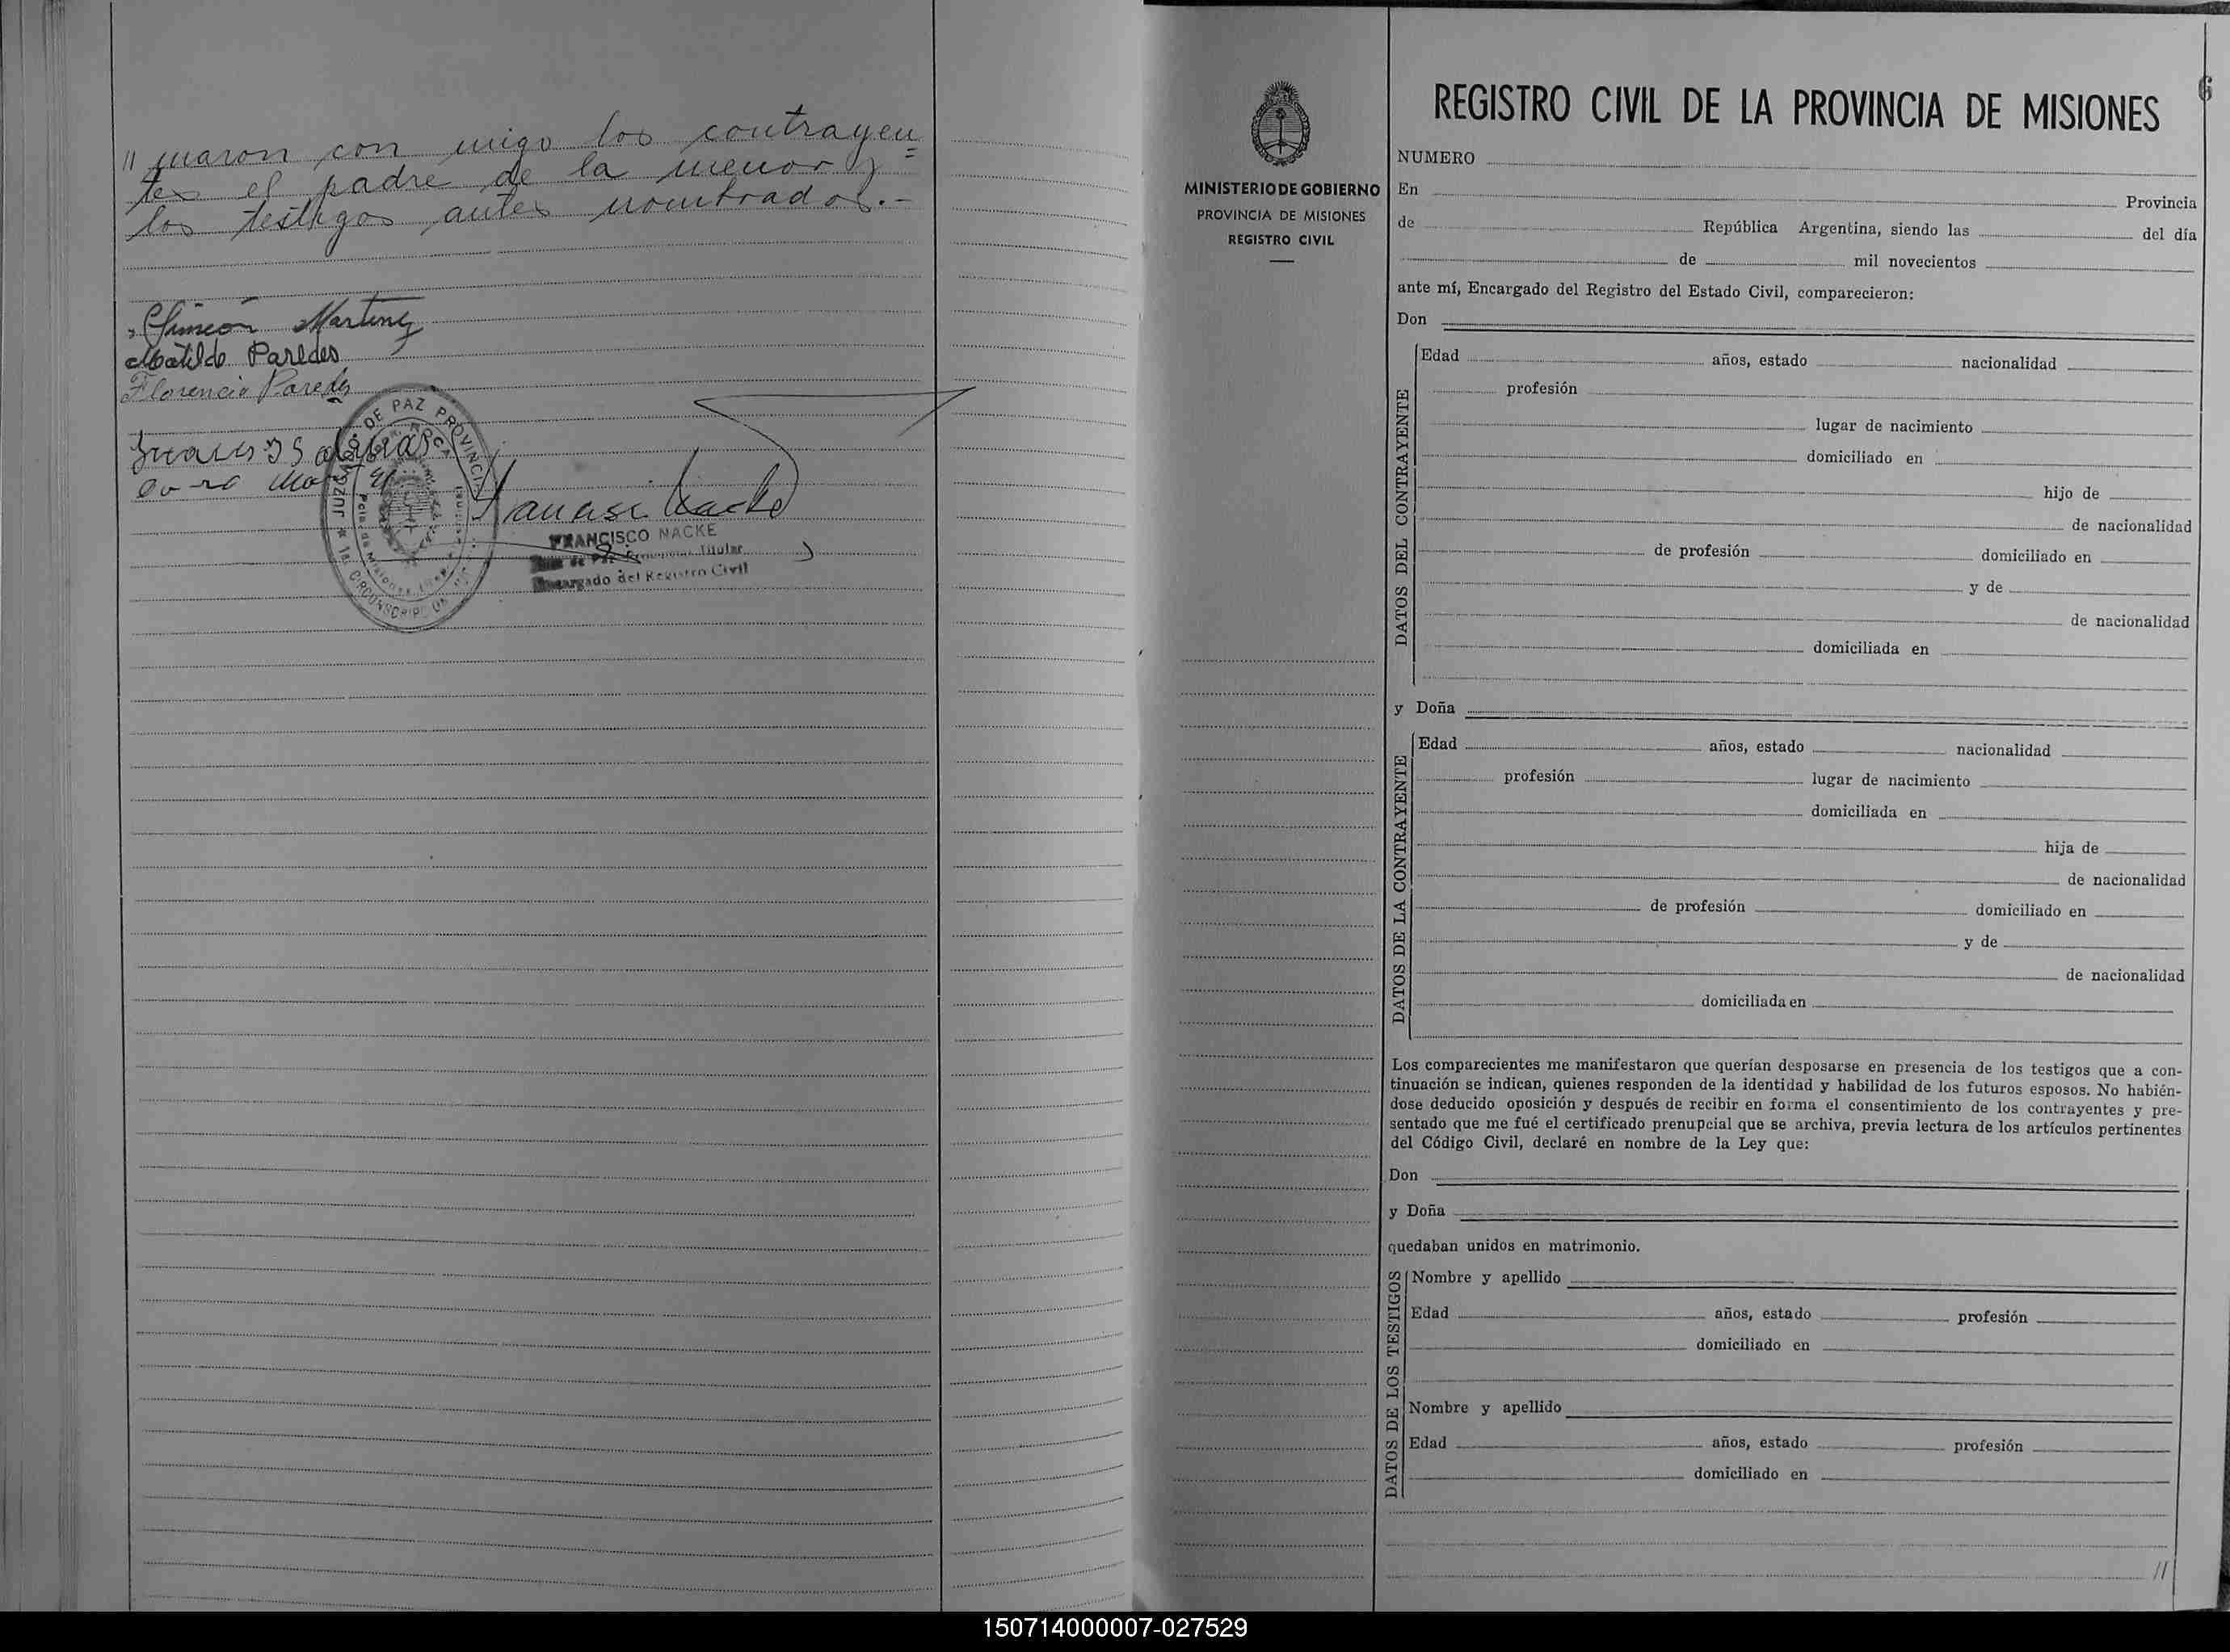 " maron con migo los contrayen
tes el padre de la menor y =
los testigos antes nombrados.-
Simeón Martinez
Matilde Paredes
Florencio Paredes
JUZGADO DE PAZ PROVINCIA
1a. CIRCUNSCRIPCION
FRANCISCO NACKE
Juez de Paz Titular
Encargado del Registro Civil
6
MINISTERIO DE GOBIERNO
PROVINCIA DE MISIONES
REGISTRO CIVIL
REGISTRO CIVIL DE LA PROVINCIA DE MISIONES
NUMERO
En Provincia
de República Argentina, siendo las del día
de mil novecientos
ante mí, Encargado del Registro del Estado Civil, comparecieron:
Don
DATOS DEL CONTRAYENTE
Edad años, estado nacionalidad
profesión
lugar de nacimiento
domiciliado en
hijo de
de nacionalidad
de profesión domiciliado en
y de
de nacionalidad
domiciliada en
y Doña
DATOS DE LA CONTRAYENTE
Edad años, estado nacionalidad
profesión lugar de nacimiento
domiciliada en
hija de
de nacionalidad
de profesión domiciliado en
y de
de nacionalidad
domiciliada en
Los comparecientes me manifestaron que querían desposarse en presencia de los testigos que a con-
tinuación se indican, quienes responden de la identidad y habilidad de los futuros esposos. No habién-
dose deducido oposición y después de recibir en forma el consentimiento de los contrayentes y pre-
sentado que me fué el certificado prenupcial que se archiva, previa lectura de los artículos pertinentes
del Código Civil, declaré en nombre de la Ley que:
Don
y Doña
quedaban unidos en matrimonio.
DATOS DE LOS TESTIGOS
Nombre y apellido
Edad años, estado profesión
domiciliado en
Nombre y apellido
Edad años, estado profesión
domiciliado en
//
150714000007-027529